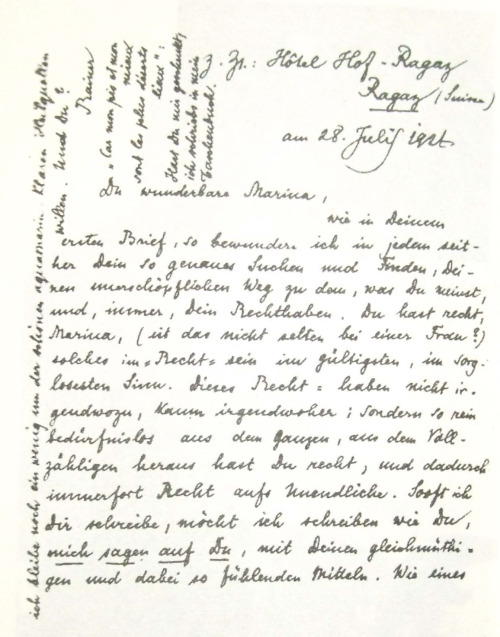 z. Zt.: Hôtel Hof-Ragaz
Ragaz (Suisse)
am 28. Julij 1926
Du wunderbare Marina,
wie in Deinem
ersten Brief, so bewundere ich in jedem seit-
her Dein so genaues Suchen und Finden, Dei-
nen unerschöpflichen Weg zu dem, was Du meinst,
und, immer, Dein Rechthaben. Du hast recht,
Marina, (ist das nicht selten bei einer Frau?)
solches im=Recht=sein im gültigsten, im sorg-
losesten Sinn. Dieses Recht=haben nicht ir-
gendwozu, kaum irgendwoher; sondern so rein
bedürfnislos aus dem Ganzen, aus dem Voll-
zähligen heraus hast Du recht, und dadurch
immerfort Recht aufs Unendliche. Sooft ich
Dir schreibe, möcht ich schreiben wie Du,
mich sagen auf Du, mit Deinen gleichmüthi-
gen und dabei so fühlenden Mitteln. Wie eines
ich bleibe noch ein wenig um der schönen aquamarin klaren Heilquellen
willen. Und Du?
Rainer
„Car mon pis et mon
mieux
sont les plus déserts
lieux":
Hast Du mir geschenkt;
ich schriebs in mein
Taschenbuch.